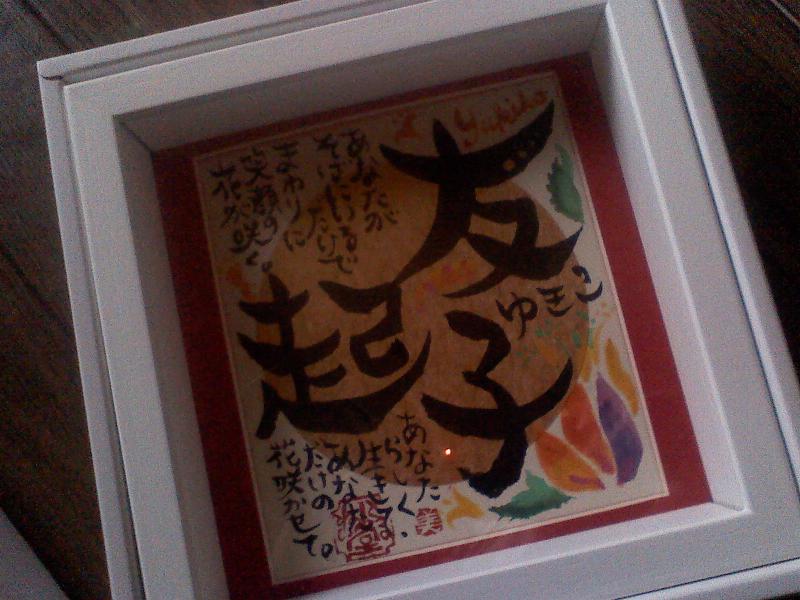 Yukiko
友
起
子
ゆきこ
あなたが
そばにいる
だけで
まわりに
笑顔の
花が咲く。
あなた
らしく、
生きて
あなた
だけの
花咲かせて。
美